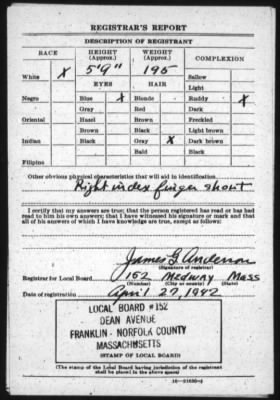 REGISTRAR'S REPORT
DESCRIPTION OF REGISTRANT
RACE HEIGHT (Approx.) WEIGHT (Approx.) COMPLEXION
5'9" 195 Sallow
White X EYES HAIR Light
Negro Blue X Blonde Ruddy X
Gray Red Dark
Oriental Hazel Brown Freckled
Brown Black Light brown
Indian Black Gray X Dark brown
Bald Black
Filipino
Other obvious physical characteristics that will aid in identification.
Right index finger short
I certify that my answers are true; that the person registered has read or has had
read to him his own answers; that I have witnessed his signature or mark and that
all of his answers of which I have knowledge are true, except as follows:
James G. Anderson
(Signature of registrar)
Registrar for Local Board 152 Medway Mass
(Number) (City or county) (State)
Date of registration April 27, 1942
LOCAL BOARD #152
DEAN AVENUE
FRANKLIN - NORFOLK COUNTY
MASSACHUSETTS
(STAMP OF LOCAL BOARD)
(The stamp of the Local Board having jurisdiction of the registrant
shall be placed in the above space)